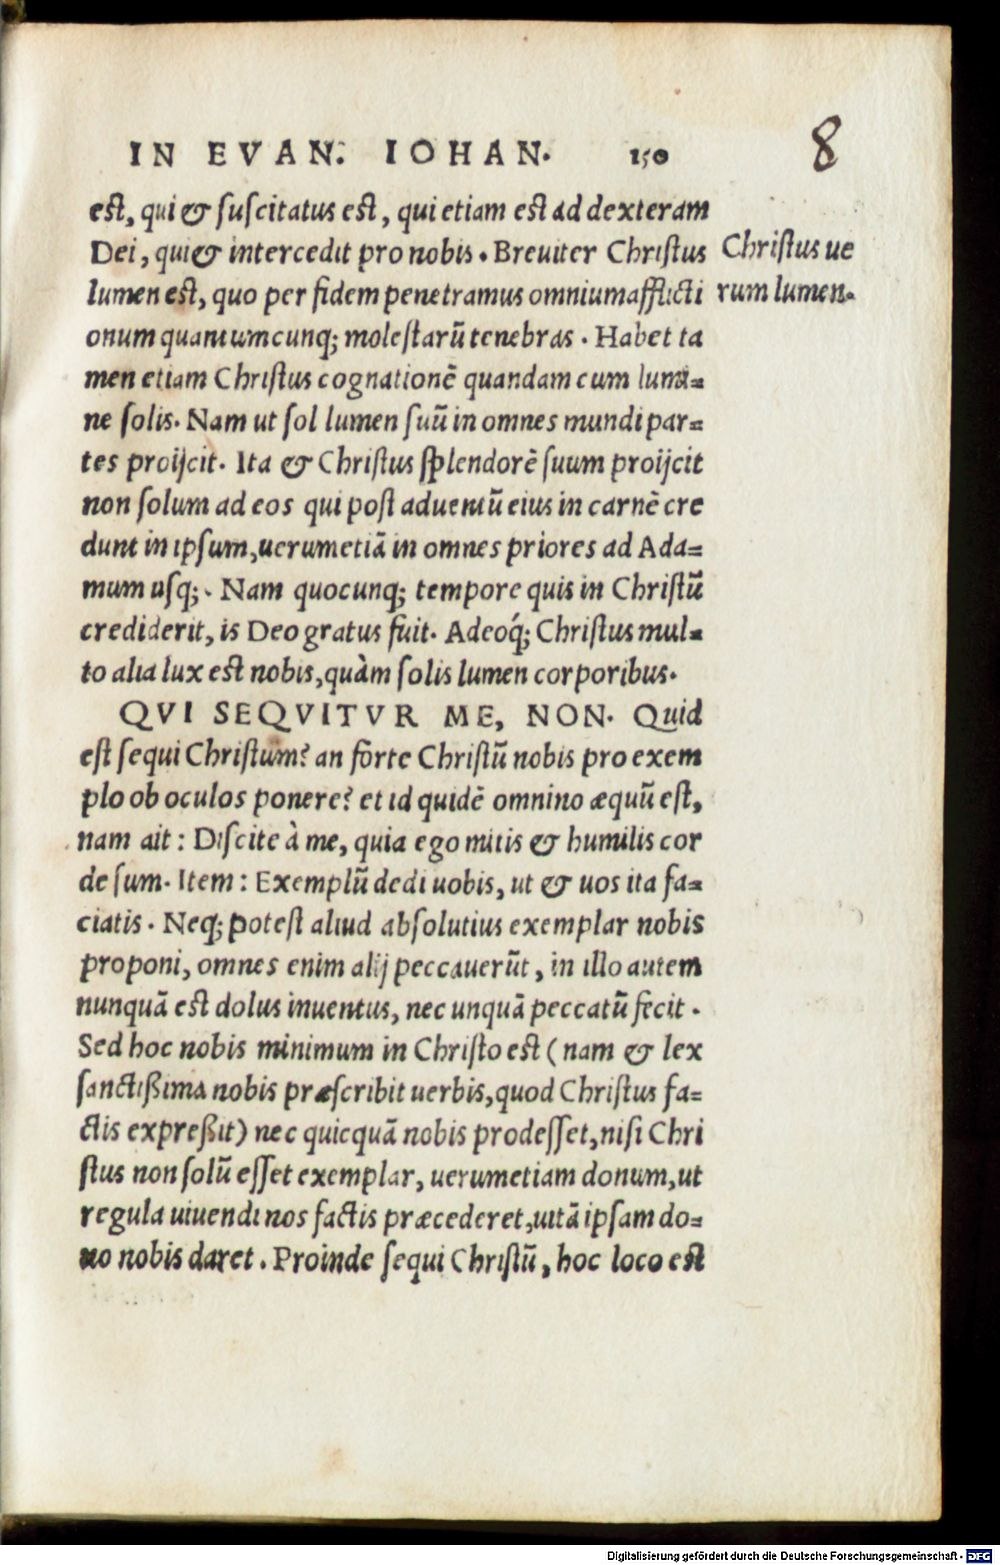 IN EVAN. IOHAN. 150
8
est, qui & suscitatus est, qui etiam est ad dexteram
Dei, qui & intercedit pro nobis. Breuiter Christus
lumen est, quo per fidem penetramus omnium afflicti
onum quantumcunq; molestarū tenebras. Habet ta
men etiam Christus cognationē quandam cum lumi=
ne solis. Nam ut sol lumen suū in omnes mundi par=
tes proijcit. Ita & Christus splendorē suum proijcit
non solum ad eos qui post aduentū eius in carnē cre
dunt in ipsum, uerumetiā in omnes priores ad Ada=
mum usq;. Nam quocunq; tempore quis in Christū
crediderit, is Deo gratus fuit. Adeoq́; Christus mul=
to alia lux est nobis, quàm solis lumen corporibus.
QVI SEQVITVR ME, NON. Quid
est sequi Christum? an forte Christū nobis pro exem
plo ob oculos ponere? et id quidē omnino æquū est,
nam ait: Discite à me, quia ego mitis & humilis cor
de sum. Item: Exemplū dedi uobis, ut & uos ita fa=
ciatis. Neq; potest aliud absolutius exemplar nobis
proponi, omnes enim alij peccauerūt, in illo autem
nunquā est dolus inuentus, nec unquā peccatū fecit.
Sed hoc nobis minimum in Christo est (nam & lex
sanctißima nobis præscribit uerbis, quod Christus fa=
ctis expreßit) nec quicquā nobis prodesset, nisi Chri
stus non solū esset exemplar, uerumetiam donum, ut
regula uiuendi nos factis præcederet, uitā ipsam do=
no nobis daret. Proinde sequi Christū, hoc loco est
Christus ue
rum lumen.
Digitalisierung gefördert durch die Deutsche Forschungsgemeinschaft - DFG